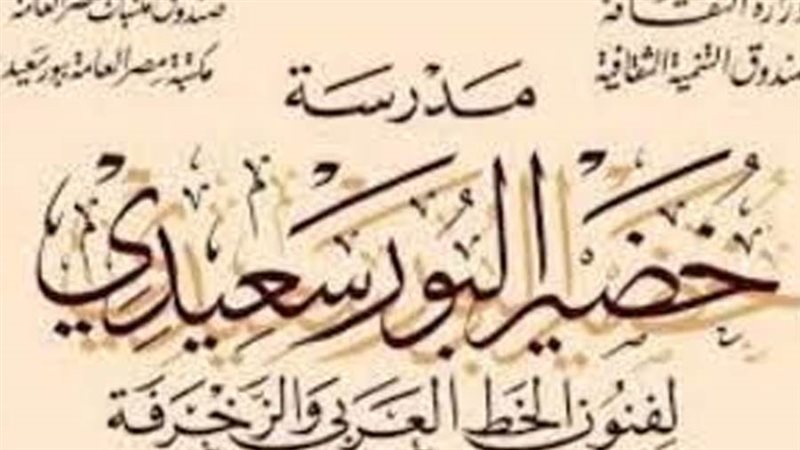 وزارة الثقافة
صندوق التنمية الثقافية
صندوق مكتبات مصر العامة
مكتبة مصر العامة ببورسعيد
مَدْرَسَة
خُضَيْر البُورسَعِيدِي
لِفنُون الخَط العَرَبي وَالزَّخْرَفَة